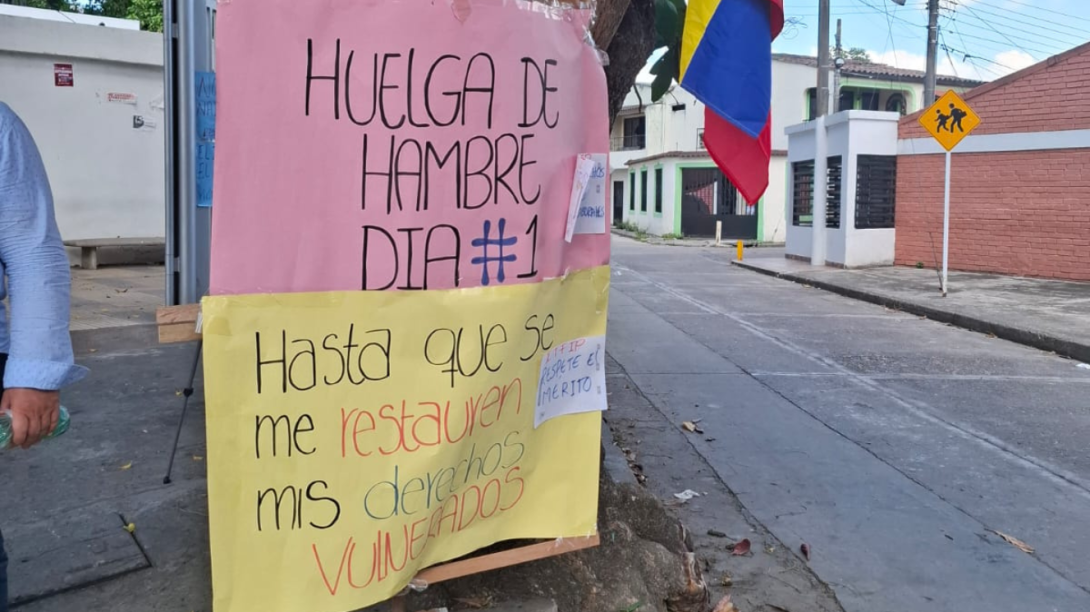 HUELGA DE
HAMBRE
DIA #1
Hasta que se
me restauren
mis derechos
VULNERADOS
RESPETE El
MERITO